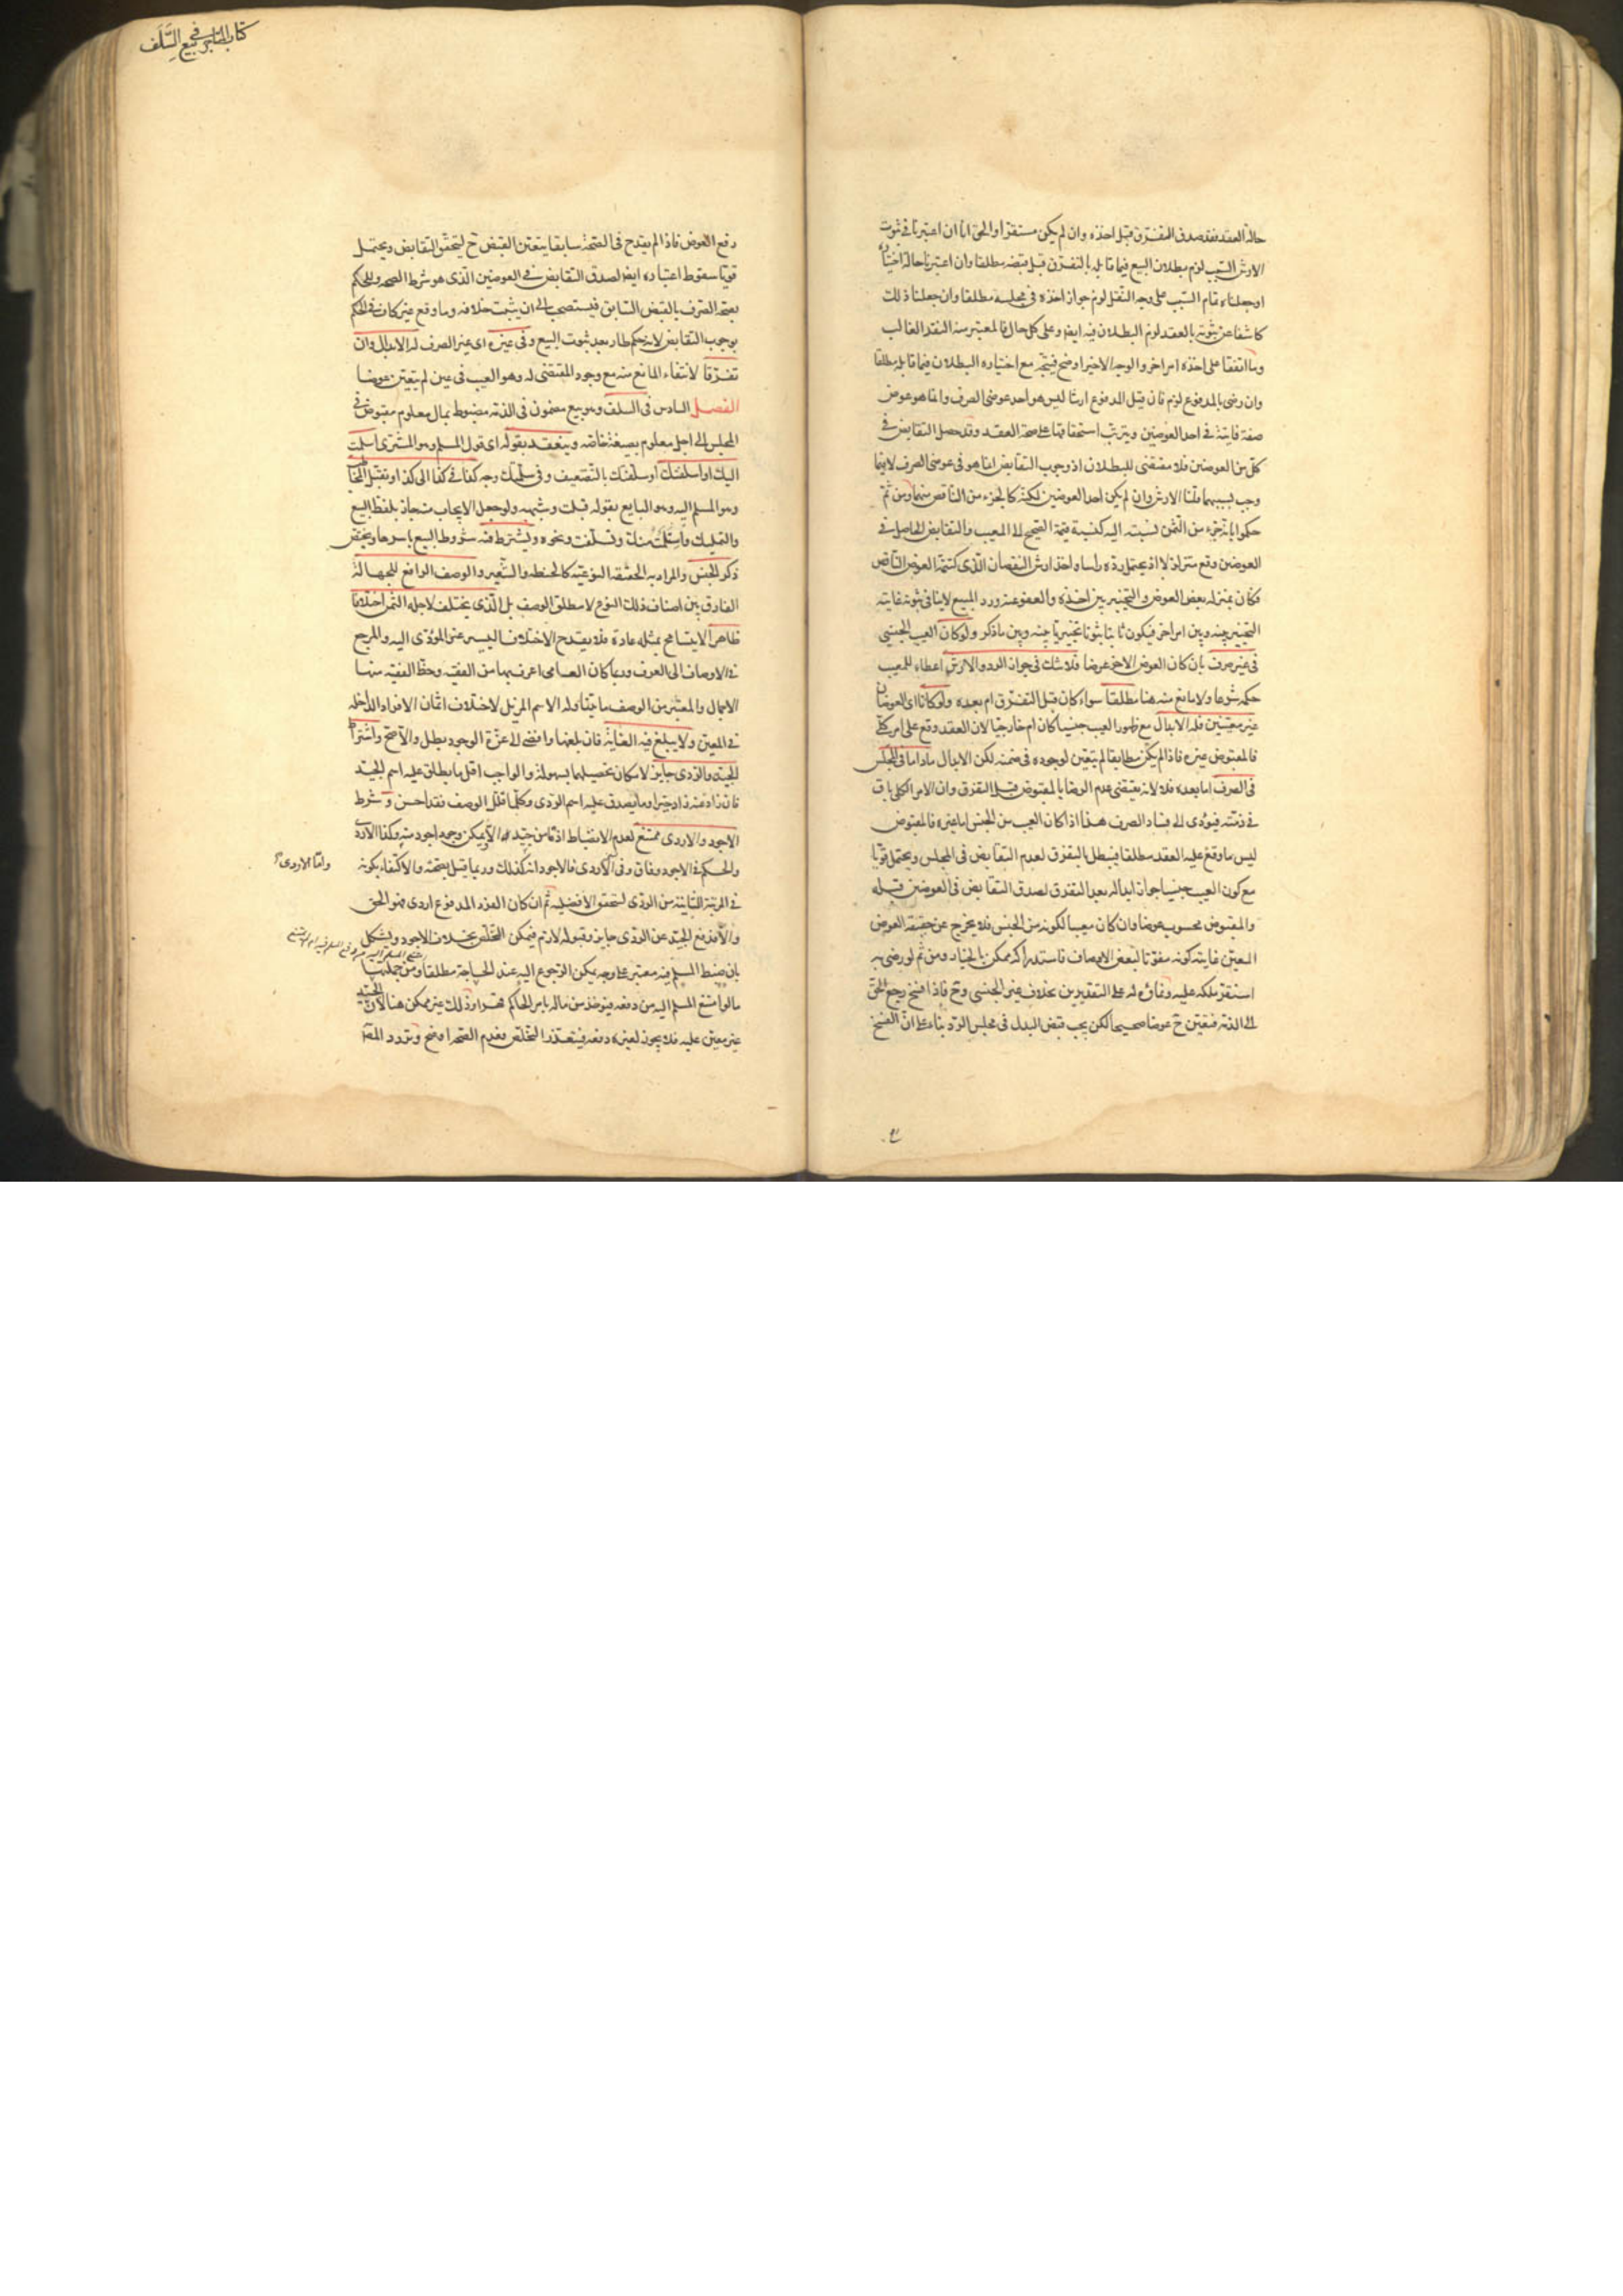 حالة العقد فقد صدق التفرق قبل اخذه وان لم يكن مستقرا والحق انا ان اعتبرنا في ثبوت
الارش السبب لزم بطلان البيع فيما قابله بالتفرق قبل قبضه مطلقا وان اعتبرنا حالة اختياره
او جعلناه تمام السبب على وجه النقل لزم جواز اخذه في مجلسه مطلقا وان جعلنا ذلك
كاشفا عن ثبوته بالعقد لزم البطلان فيه ايضا وعلى كل حال فالمعتبر منه النقد الغالب
وما اتفقا على اخذه امر اخر والوجه الاخير اوضح فيتجه مع اختياره البطلان فيما قابله مطلقا
وان رضي بالمدفوع لزم فان قيل المدفوع ارشا ليس هو احد عوضي الصرف وانما هو عوض
صفة فايتة في احد العوضين ويترتب استحقاقها على صحة العقد وقد حصل التقابض في
كل من العوضين فلا مقتضى للبطلان اذ وجوب التقابض انما هو في عوضي الصرف لا فيما
وجب بسببهما قلنا الارش وان لم يكن احد العوضين لكنه كالجزء من الناقص منهما ومن ثم
حكموا بانه جزء من الثمن نسبته اليه كنسبة قيمة الصحيح الى المعيب والتقابض الحاصل في
العوضين وقع متزلزلا اذ يحتمل رده راسا واخذ ارش النقصان الذي كتتمة العوض الناقص
فكان بمنزلة بعض العوض والتخيير بين اخذه والعفو عنه ورد المبيع لا ينافي ثبوته غايته
التخيير بينه وبين امر اخر فيكون ثابتا ثبوتا تخييريا بينه وبين ما ذكر ولو كان العيب الجنسي
في غير صرف بان كان العوض الاخر عرضا فلا شك في جواز الرد والارش اعطاء للمعيب
حكمه شرعا ولا مانع منه هنا مطلقا سواء كان قبل التفرق ام بعده ولو كانا اي العوضان
غير معينين فله الابدال مع ظهور العيب جنسيا كان ام خارجيا لان العقد وقع على امر كلي
فالمقبوض غيره فاذا لم يكن مطابقا لم يتعين لوجوده في ضمنه لكن الابدال ماداما في المجلس
في الصرف اما بعده فلا لانه يقتضي عدم الرضا بالمقبوض قبل التفرق وان الامر الكلي باق
في ذمته فيؤدي الى فساد الصرف هذا اذا كان العيب من الجنس اما غيره فالمقبوض
ليس ما وقع عليه العقد مطلقا فيبطل بالتفرق لعدم التقابض في المجلس ويحتمل قويا
مع كون العيب جنسيا جواز ابداله بعد التفرق لصدق التقابض في العوضين قبله
والمقبوض محسوب عوضا وان كان معيبا لكونه من الجنس فلا يخرج عن حقيقة العوض
المعين غايته كونه مفوتا لبعض الاوصاف فاستدراكه ممكن بالخيار ومن ثم لو رضي به
استقر ملكه عليه ونماؤه له على التقديرين بخلاف غير الجنسي وح فاذا فسخ رجع الحق
الى الذمة فيتعين ح عوضا صحيحا لكن يجب قبض البدل في مجلس الرد بناء على ان الفسخ
كتاب المتاجر في بيع السلف
رفع العوض فاذا لم يقدح في الصحة سابقا يتعين القبض ح ليتحقق التقابض ويحتمل
قويا سقوط اعتباره ايضا لصدق التقابض في العوضين الذي هو شرط الصحة وللحكم
بصحة الصرف بالقبض السابق فيستصحب الى ان يثبت خلافه وما وقع غير كاف في الحكم
بوجوب التقابض لانه حكم طار بعد ثبوت البيع وفي غيره اي غير الصرف له الابدال وان
تفرقا لانتفاء المانع منه مع وجود المقتضي له وهو العيب في عين لم يتعين عوضا
الفصل السادس في السلف وهو بيع مضمون في الذمة مضبوط بمال معلوم مقبوض في
المجلس الى اجل معلوم بصيغة خاصة وينعقد بقوله اي قول المسلم وهو المشتري اسلمت
اليك او اسلفتك او سلفتك بالتضعيف وفي سلمتك وجه كذا في كذا الى كذا ويقبل المخاطب
وهو المسلم اليه وهو البايع بقوله قبلت وشبهه ولو جعل الايجاب منه جاز بلفظ البيع
والتمليك واستلمت منك وتسلفت ونحوه ويشترط فيه شروط البيع باسرها ويختص
ذكر الجنس والمراد به الحقيقة النوعية كالحنطة والشعير والوصف الرافع للجهالة
الفارق بين اصناف ذلك النوع لا مطلق الوصف بل الذي يختلف لاجله الثمن اختلافا
ظاهرا لا يتسامح بمثله عادة فلا يقدح الاختلاف اليسير غير المؤدي اليه والمرجع
في الاوصاف الى العرف وربما كان العامي اعرف بها من الفقيه وحظ الفقيه منها
الاجمال والمعتبر من الوصف ما يتناوله الاسم المزيل لاختلاف اثمان الافراد الداخلة
في المعين ولا يبلغ فيه الغاية فان بلغها وافضى الى عزة الوجود بطل والا صح واشتراط
الجيد والردي جايز لامكان تحصيلهما بسهولة والواجب اقل ما يطلق عليه اسم الجيد
فان زاد عنه زاد خيرا وما يصدق عليه اسم الردي وكلما قلل الوصف فقد احسن وشرط
الاجود والاردى ممتنع لعدم الانضباط اذ ما من جيد الا ويمكن وجود اجود منه وكذا الاردى
والحكم في الاجود وفاق وفي الاردى فالاجود انه كذلك وربما قيل بصحته والاكتفاء بكونه
واما الاردى
في المرتبة الثانية من الردي لتحقق الافضلية ثم ان كان الفرد المدفوع اردى فهو الحق
والا فدفع الجيد عن الردي جايز وقبوله لازم فيمكن التخلص بخلاف الاجود ويشكل
بان ضبط المسلم فيه معتبر على وجه يمكن الرجوع اليه عند الحاجة مطلقا ومن جملتها
ما لو امتنع المسلم اليه من دفعه فيؤخذ من ماله بامر الحاكم قهرا وذلك غير ممكن هنا لان الجيد
غير معين عليه فلا يجوز لغيره دفعه فيتعذر التخلص فعدم الصحة اوضح وتردد المص